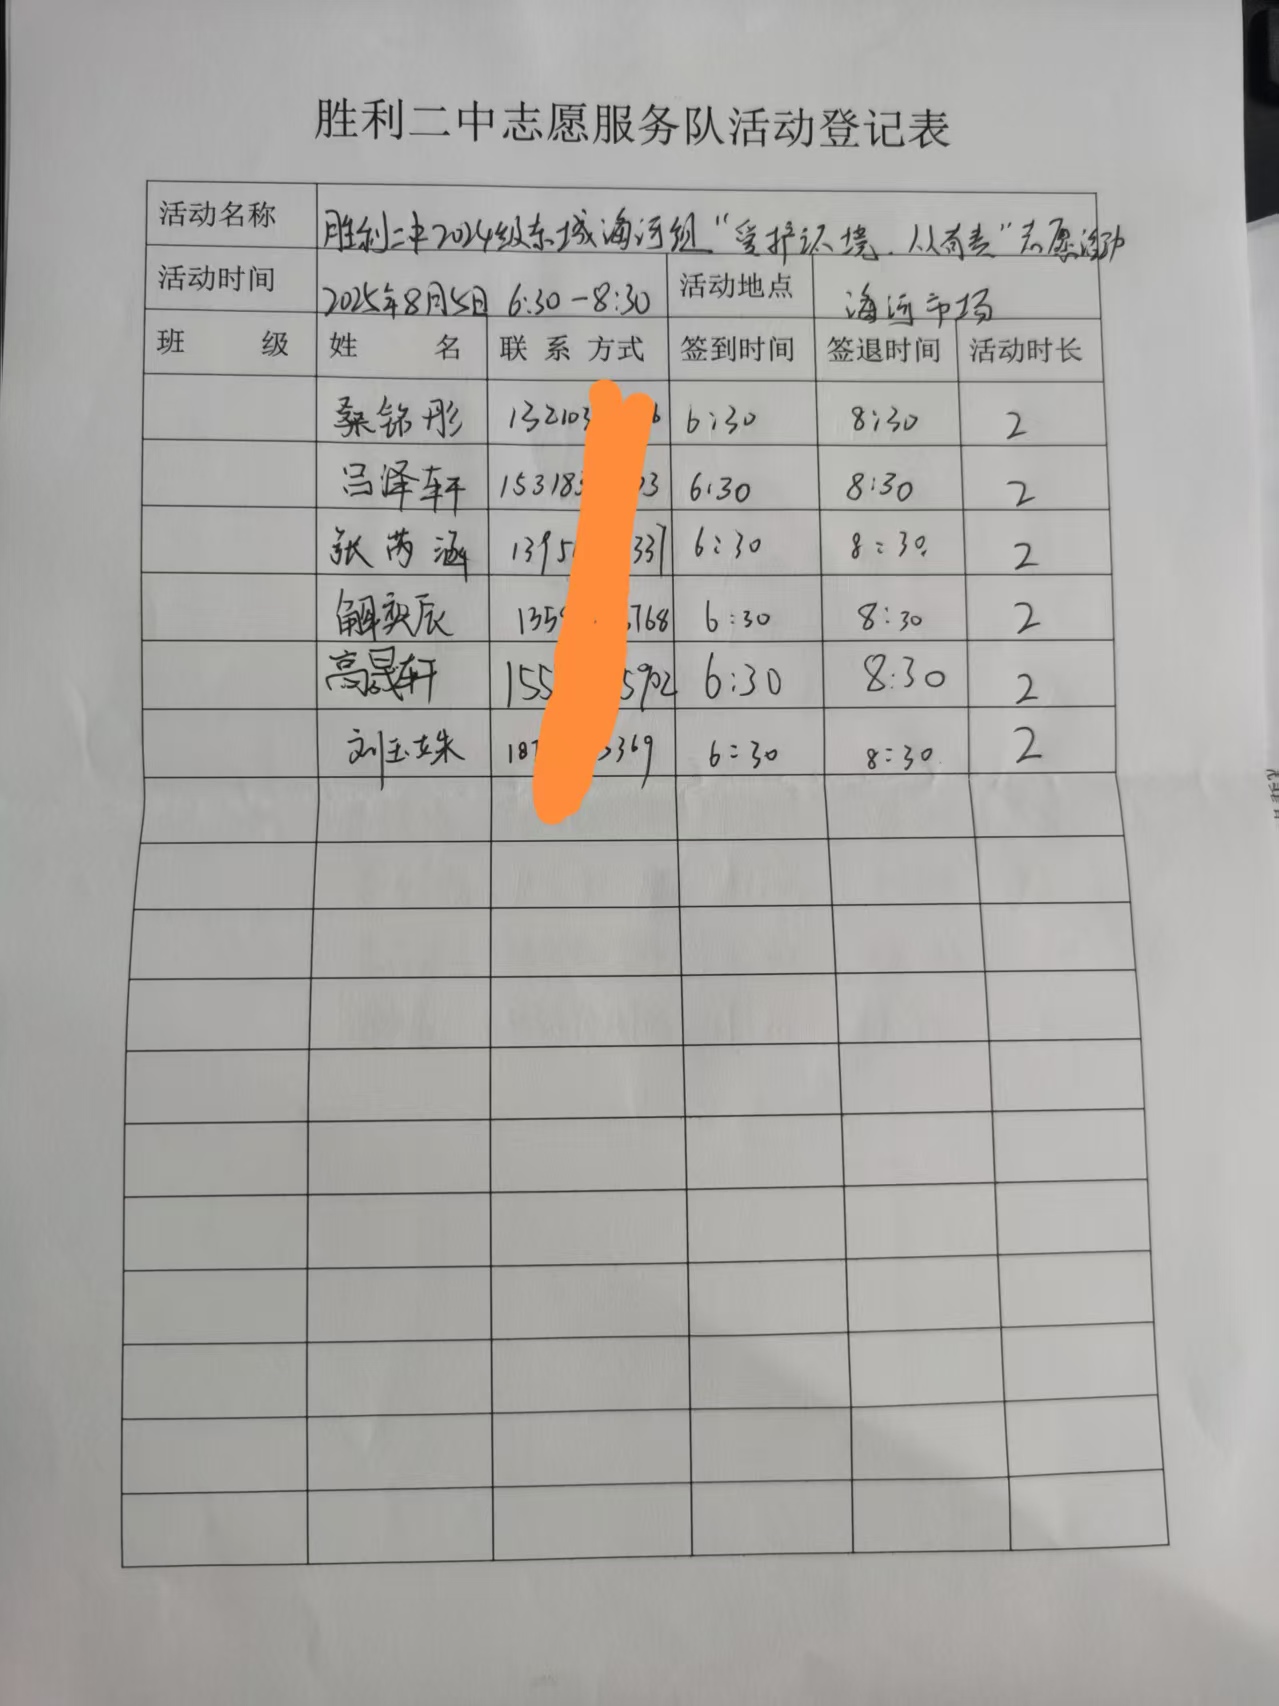 胜利二中志愿服务队活动登记表
活动名称 胜利二中2024级东城海河组“爱护环境、人人有责”志愿活动
活动时间 2025年8月5日 6:30-8:30 活动地点 海河市场
班 级 姓 名 联 系 方式 签到时间 签退时间 活动时长
桑铭彤 13210 6 6:30 8:30 2
吕泽轩 15318 03 6:30 8:30 2
张芮涵 1395 337 6:30 8:30 2
解奕辰 135 768 6:30 8:30 2
高晟轩 155 5902 6:30 8:30 2
刘玉姝 187 3369 6:30 8:30 2